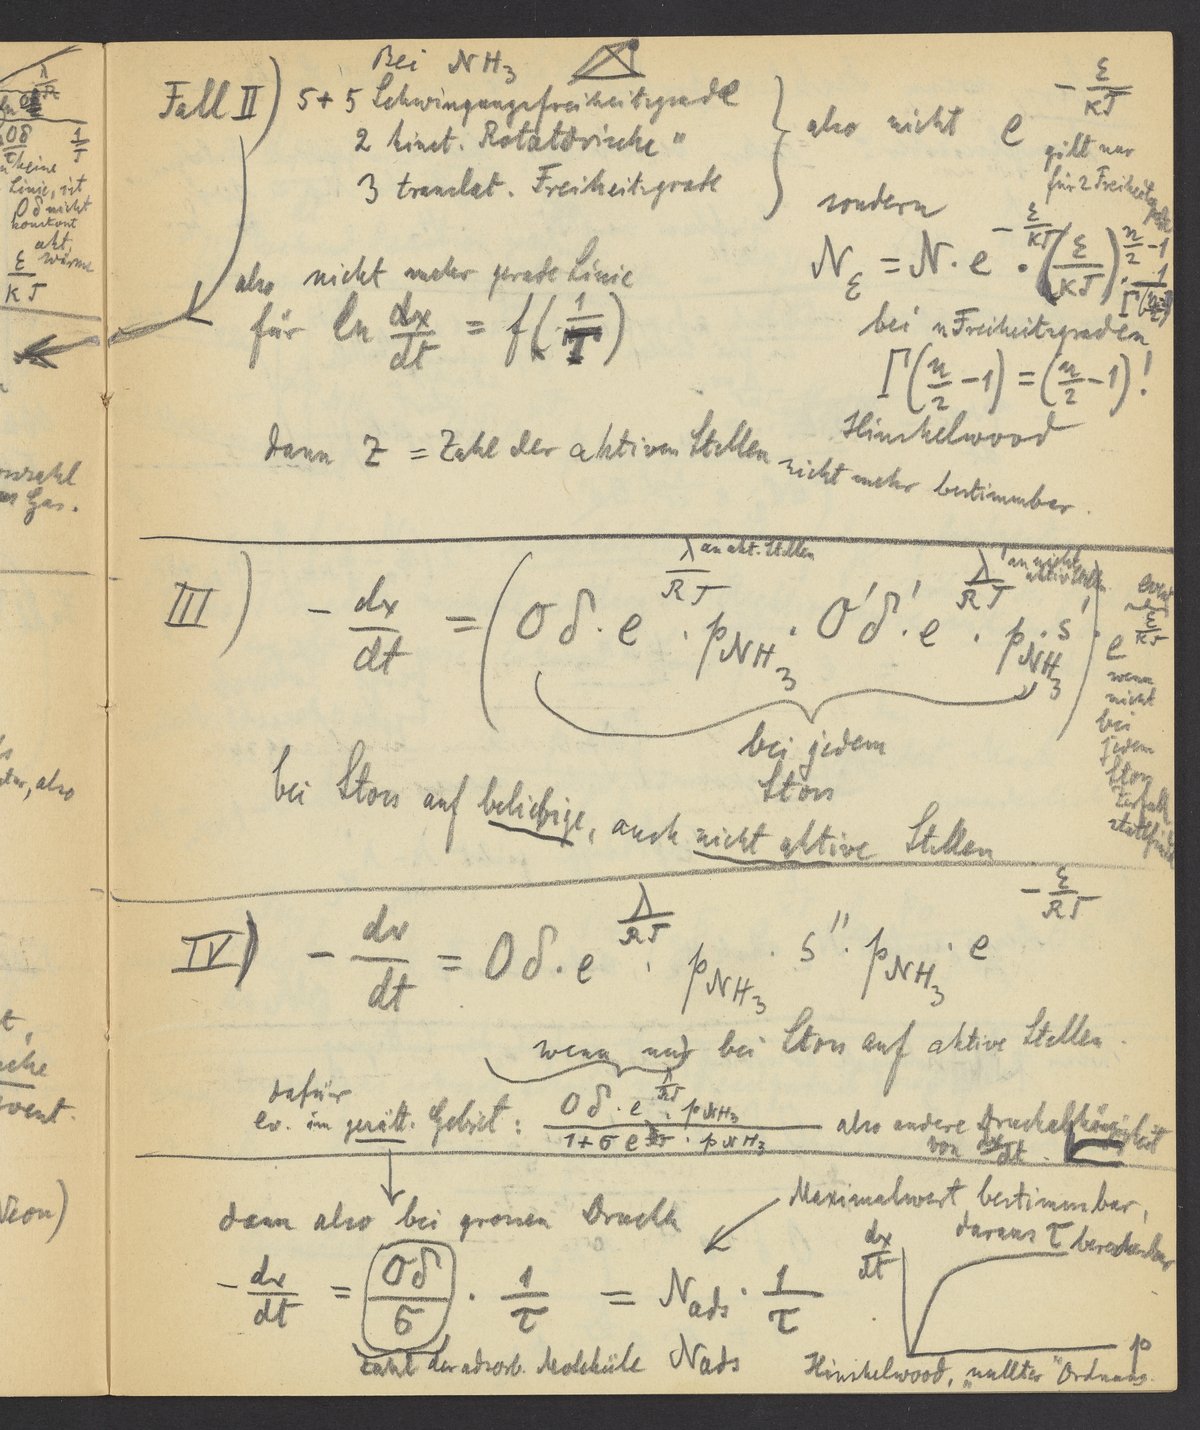 Bei NH₃
Fall II) 5 + 5 Schwingungsfreiheitsgrade
2 kinet. Rotatorische "
3 translat. Freiheitsgrade
also nicht e^(-ε/KT)
gilt nur
für 2 Freiheitsgrade
sondern
N_ε = N · e^(-ε/KT) · (ε/KT)^(n/2 - 1) · 1/Γ(n/2)
bei n Freiheitsgraden
Γ(n/2 - 1) = (n/2 - 1)!
Hinshelwood
also nicht mehr gerade Linie
für ln dx/dt = f(1/T)
dann Z = Zahl der aktiven Stellen nicht mehr bestimmbar.
III) - dx/dt = (Oδ · e^(λ/RT) · p_NH₃ · O'δ' · e^(λ'/RT) · p_NH₃ · s') ·
an akt. Stellen
an nicht
aktiv. Stellen
e^(-ε/RT)
wenn
nicht
bei
jedem
Stoss
Zerfall
stattfindet
bei jedem
Stoss
bei Stoss auf beliebige, auch nicht aktive Stellen
IV) - dx/dt = Oδ · e^(λ/RT) · p_NH₃ · s'' · p_NH₃ · e^(-ε/RT)
wenn nur bei Stoss auf aktive Stellen.
dafür
ev. im gesätt. Gebiet: Oδ · e^(λ/RT) · p_NH₃ / 1 + σ e^(λ/RT) · p_NH₃ also andere Druckabhängigkeit
von dx/dt.
dann also bei grossen Druck
Maximalwert bestimmbar,
daraus τ berechenbar
- dx/dt = Oδ/σ · 1/τ = N_ads · 1/τ
dx/dt
p
Zahl der adsorb. Moleküle N_ads
Hinshelwood, „nullter" Ordnung.
λ/R
1/T
keine
Linie, ist
Oδ nicht
konstant
akt.
wärme
ε/KT
Gas.
also
Neon)